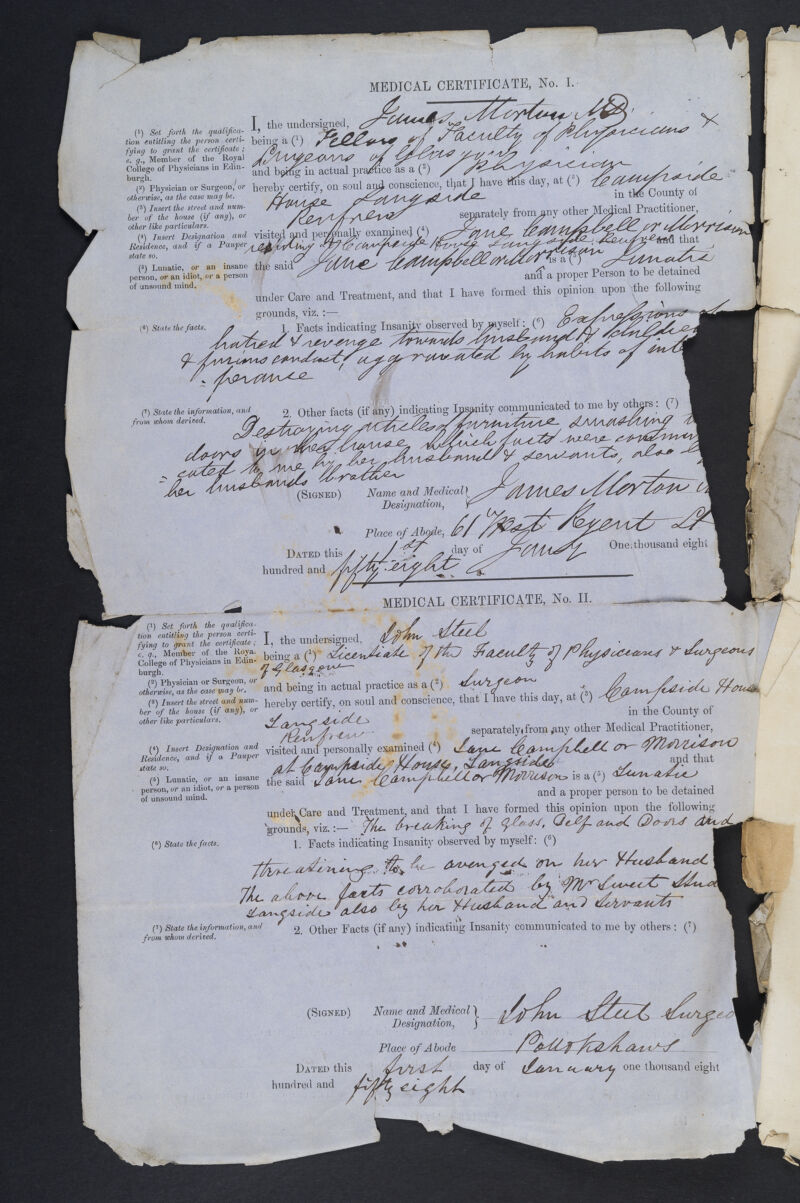 MEDICAL CERTIFICATE, No. I.
(1) Set forth the qualifica-
tion entitling the person certi-
fying to grant the certificate;
e. g., Member of the Royal
College of Physicians in Edin-
burgh.
(2) Physician or Surgeon, or
otherwise, as the case may be.
(3) Insert the street and num-
ber of the house (if any), or
other like particulars.
(4) Insert Designation and
Residence, and if a Pauper
state so.
(5) Lunatic, or an insane
person, or an idiot, or a person
of unsound mind.
I, the undersigned, James Morton MD
being a (1) Fellow of Faculty of Physicians &
Surgeons of Glasgow
and being in actual practice as a (2) Physician
hereby certify, on soul and conscience, that I have this day, at (3) Campside
House Langside in the County of
Renfrew separately from any other Medical Practitioner,
visited and personally examined (4) Jane Campbell or Morrison
residing at Campside House Langside Renfrew and that
the said Jane Campbell or Morrison is a (5) Lunatic
and a proper Person to be detained
under Care and Treatment, and that I have formed this opinion upon the following
grounds, viz. :—
(6) State the facts.
1. Facts indicating Insanity observed by myself: (6) Expressions of
hatred & revenge towards husband & children
& furious conduct, aggravated by habits of inte
-perance
(7) State the information, and
from whom derived.
2. Other facts (if any) indicating Insanity communicated to me by others: (7)
Destroying articles of furniture smashing
doors in the house which facts were commun
=cated to me by her husband & servants, also
her husbands brother
(SIGNED) Name and Medical Designation, James Morton
Place of Abode, 61 West Regent St
DATED this 1st day of Jany One thousand eight
hundred and fifty eight
MEDICAL CERTIFICATE, No. II.
(1) Set forth the qualifica-
tion entitling the person certi-
fying to grant the certificate;
e. g., Member of the Roya
College of Physicians in Edin-
burgh.
(2) Physician or Surgeon, or
otherwise, as the case may be.
(3) Insert the street and num-
ber of the house (if any), or
other like particulars.
(4) Insert Designation and
Residence, and if a Pauper
state so.
(5) Lunatic, or an insane
person, or an idiot, or a person
of unsound mind.
I, the undersigned, John Steel
being a (1) Licentiate of the Faculty of Physicians & Surgeons
of Glasgow
and being in actual practice as a (2) Surgeon
hereby certify, on soul and conscience, that I have this day, at (3) Campside House
Langside in the County of
Renfrew separately from any other Medical Practitioner,
visited and personally examined (4) Jane Campbell or Morrison
at Campside House, Langside and that
the said Jane Campbell or Morrison is a (5) Lunatic
and a proper person to be detained
under Care and Treatment, and that I have formed this opinion upon the following
grounds, viz. :— The breaking of Glass, Delf and Doors and
(6) State the facts.
1. Facts indicating Insanity observed by myself: (6)
threatining to be avenged on her Husband
The above facts corroborated by Mr Sweet
Langside also by her Husband and Servants
(7) State the information, and
from whom derived.
2. Other Facts (if any) indicating Insanity communicated to me by others: (7)
(SIGNED) Name and Medical Designation, John Steel Surgeo
Place of Abode Pollokshaws
DATED this first day of January one thousand eight
hundred and fifty eight